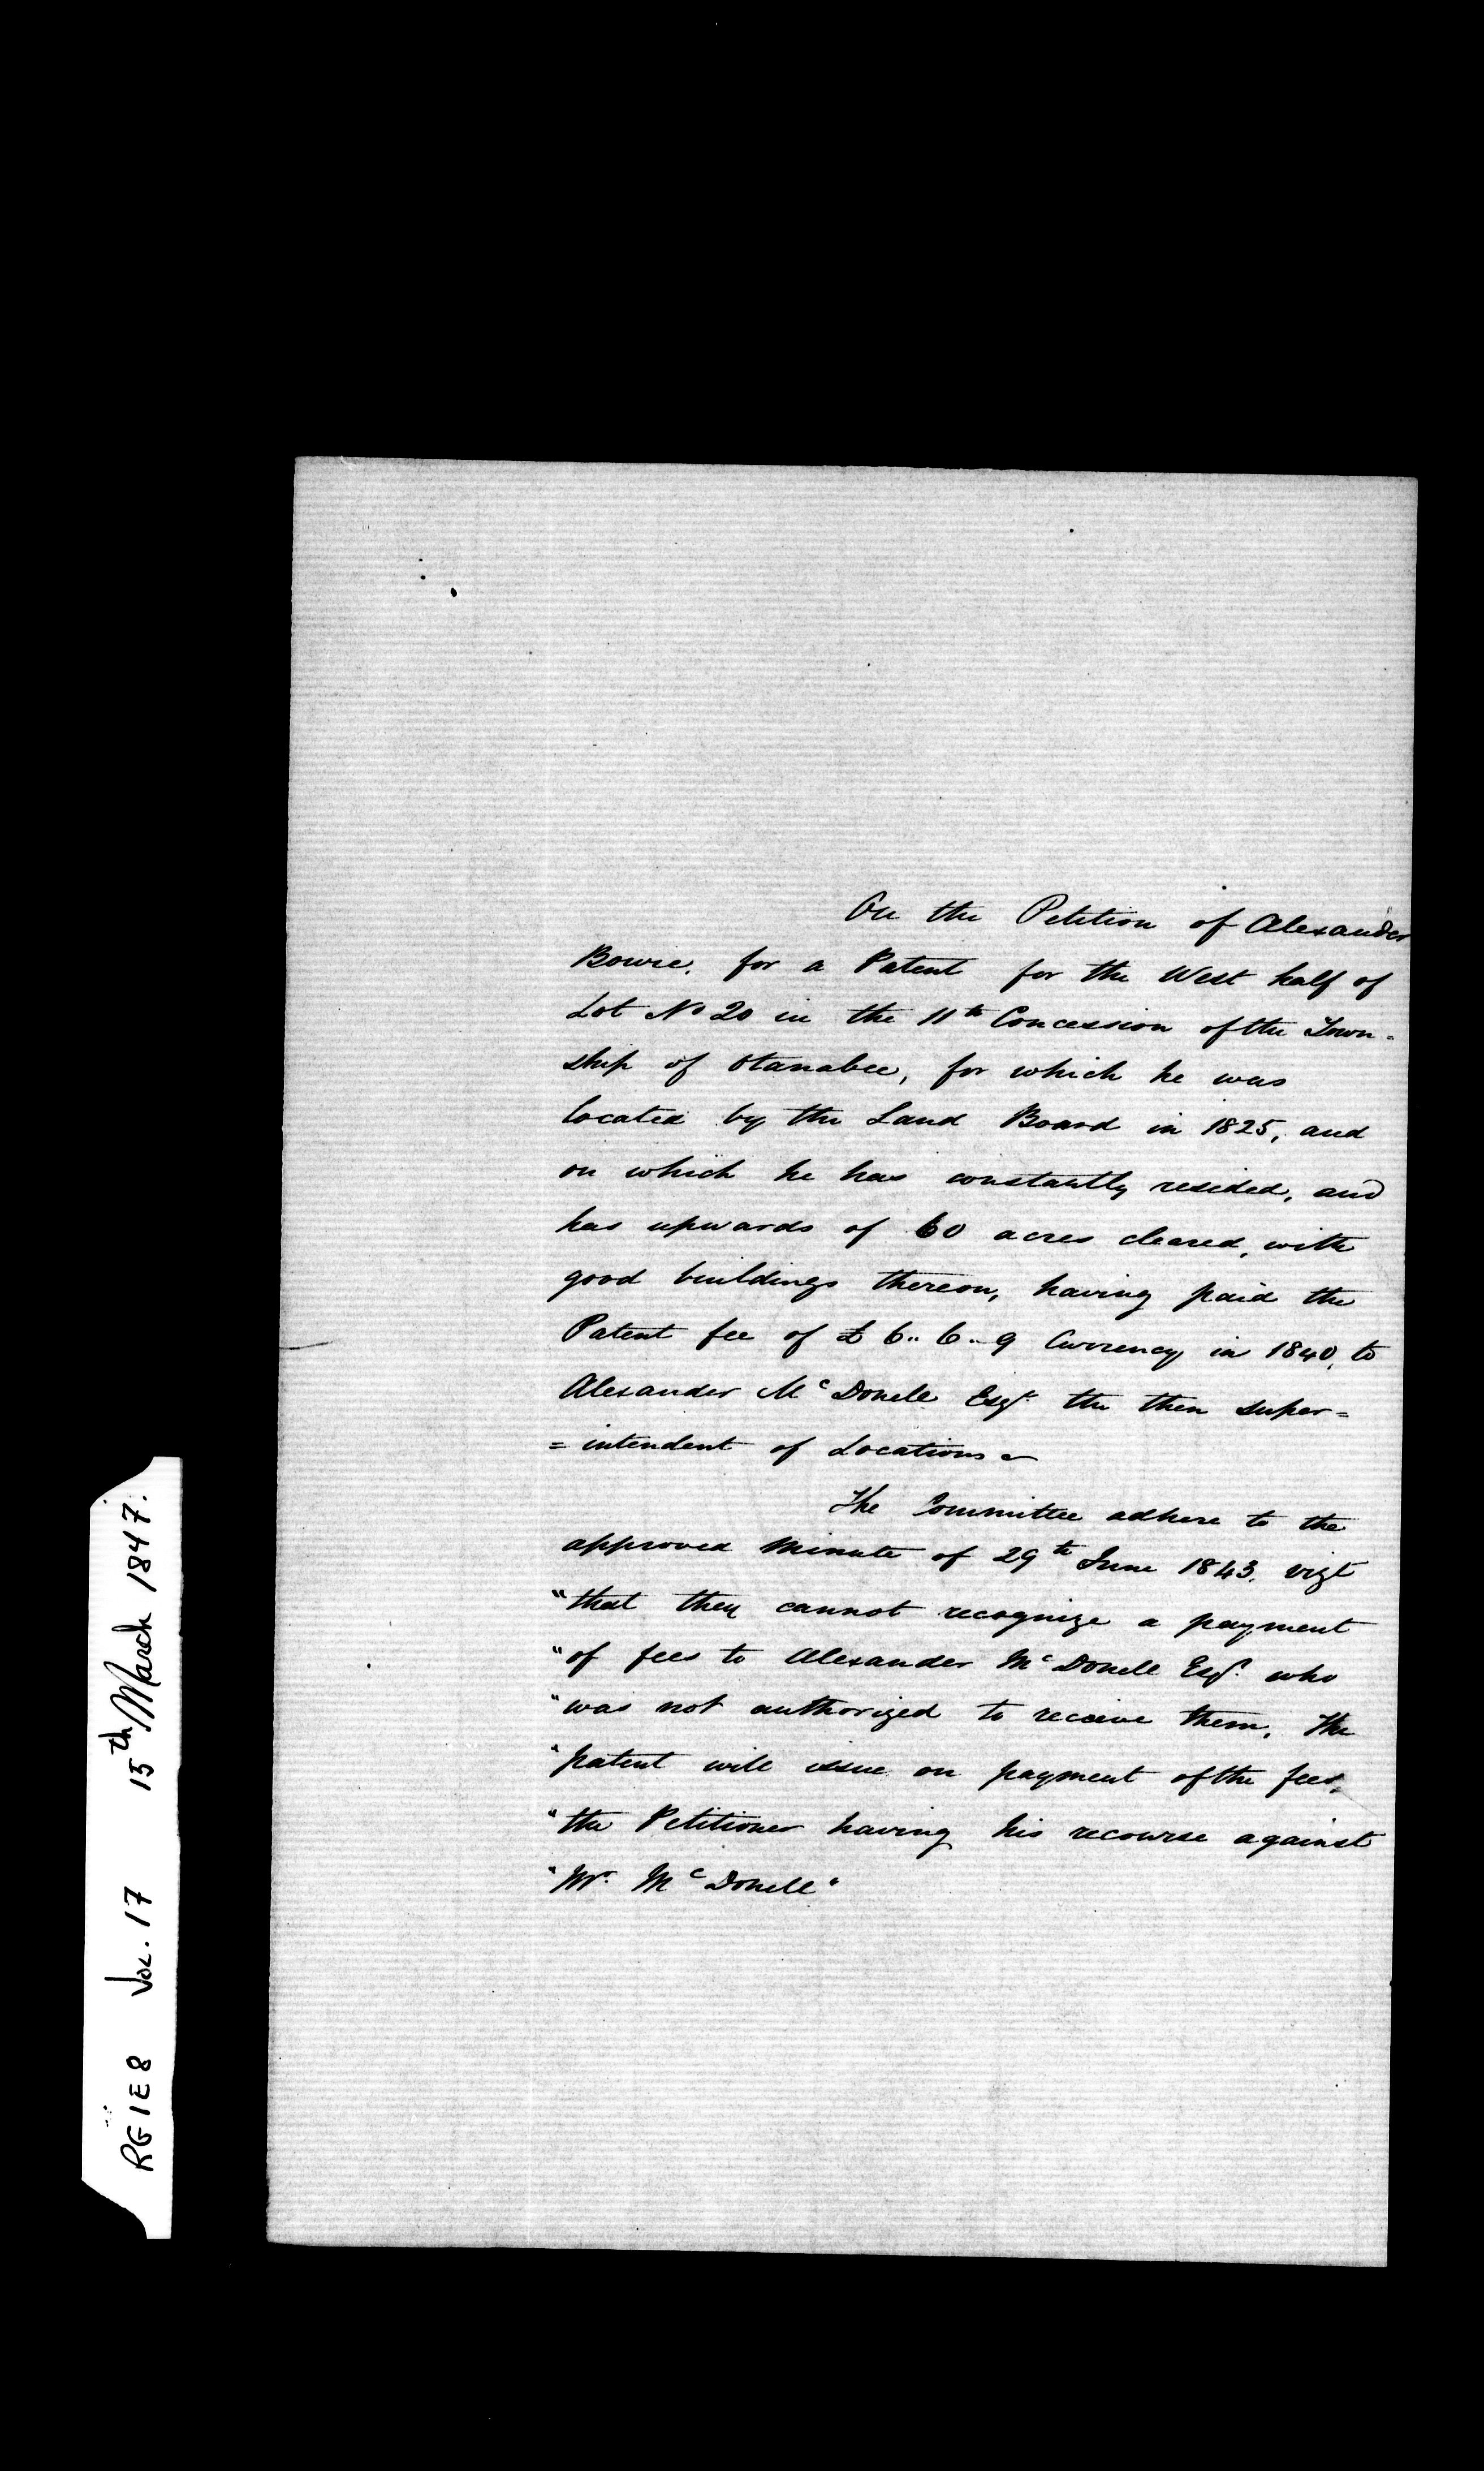 On the Petition of Alexander
Bowie, for a Patent for the West half of
Lot No 20 in the 11th Concession of the Town-
ship of Otanabee, for which he was
located by the Land Board in 1825, and
on which he has constantly resided, and
has upwards of 60 acres cleared, with
good buildings thereon, having paid the
Patent fee of £ 6.. 6.. 9 Currency in 1840, to
Alexander McDonell Esqr. the then super=
=intendent of Locations ~
The Committee adhere to the
approved Minute of 29th June 1843. vizt
"that they cannot recognize a payment
"of fees to Alexander McDonell Esqr. who
"was not authorized to receive them. The
"patent will issue on payment of the fees,
"the Petitioner having his recourse against
"Mr. McDonell"
RG 1 E 8 Vol. 17 15th March 1847.